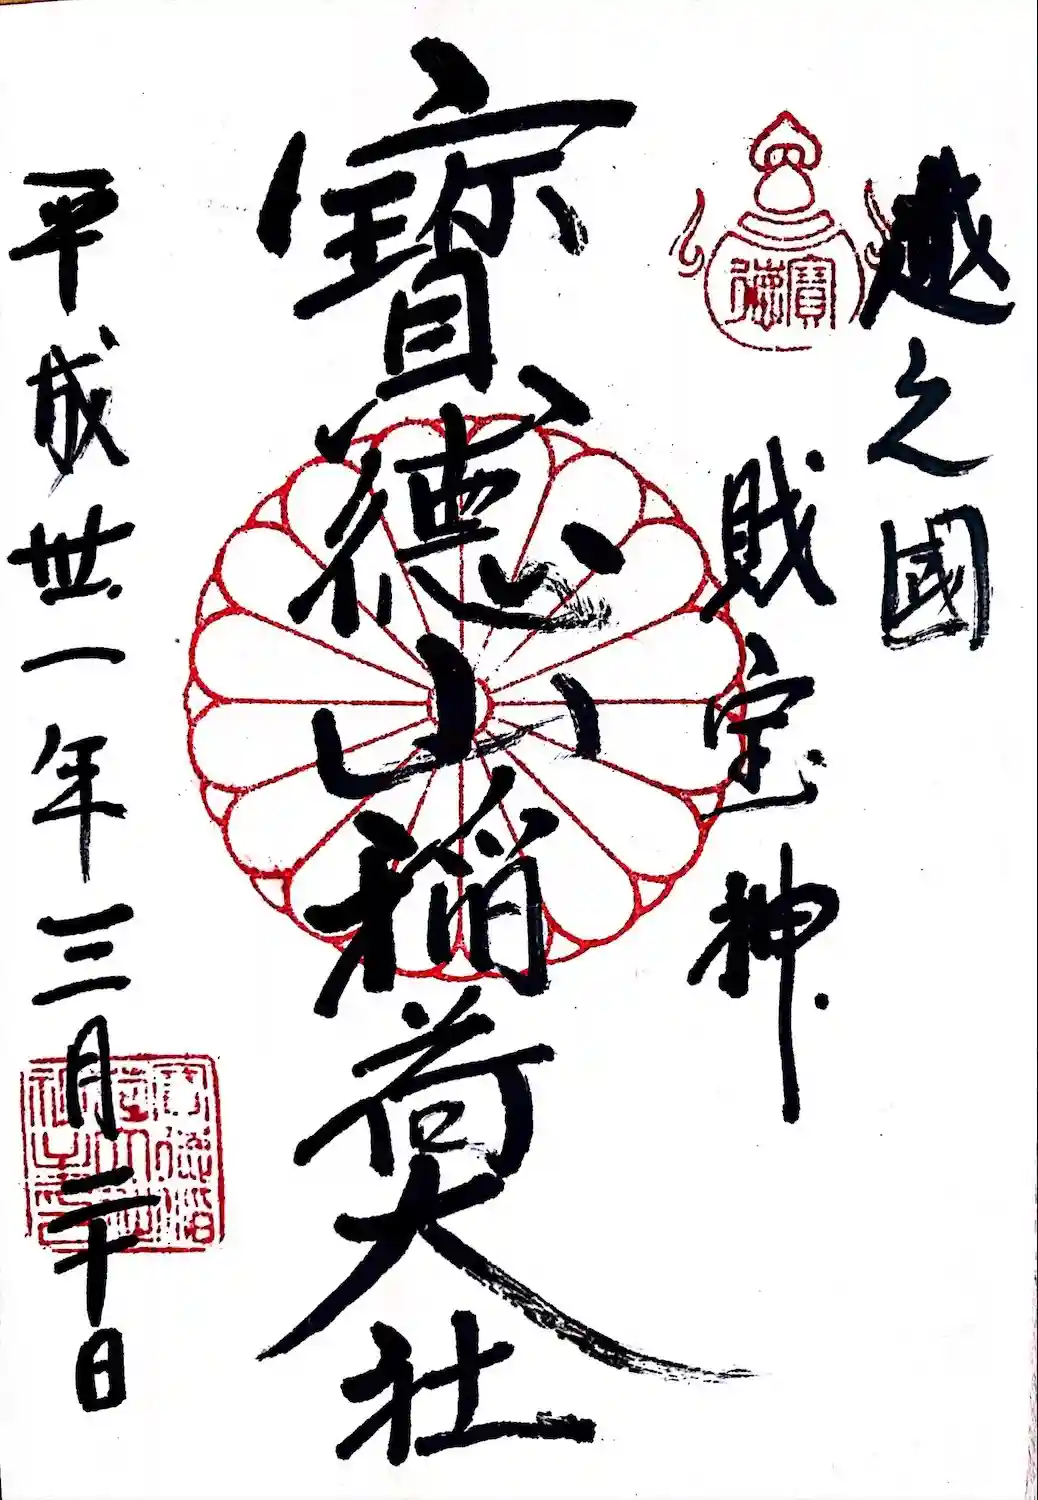 越之國
寶徳
財宝神
寳徳山稲荷大社
平成丗一年三月二十日